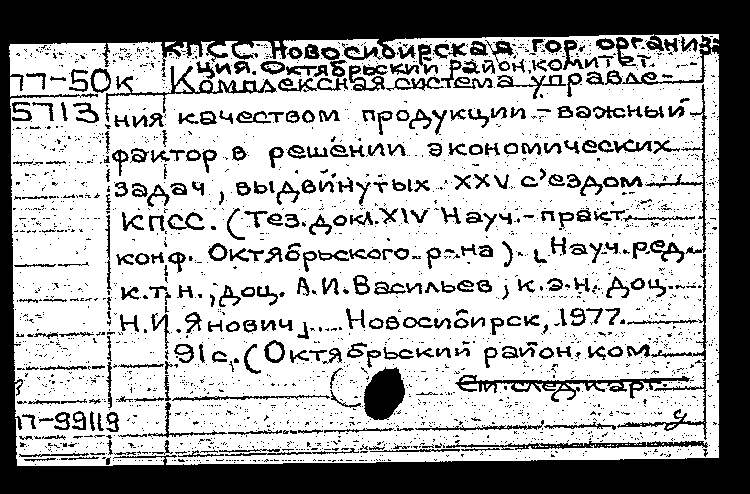 КПСС. Новосибирская гор. организа
ция. Октябрьский район. комитет.
77-50к Комплексная система управле-
5713 ния качеством продукции - важный
фактор в решении экономических
задач, выдвинутых XXV с'ездом
КПСС. (Тез. докл. XIV Науч.-практ.
конф. Октябрьского р-на). [Науч. ред.
к.т.н., доц. А.И. Васильев, к.э.н. доц.
Н.И. Янович]. Новосибирск, 1977.
91 с. (Октябрьский район. ком.
См. след. карт.
77-99119